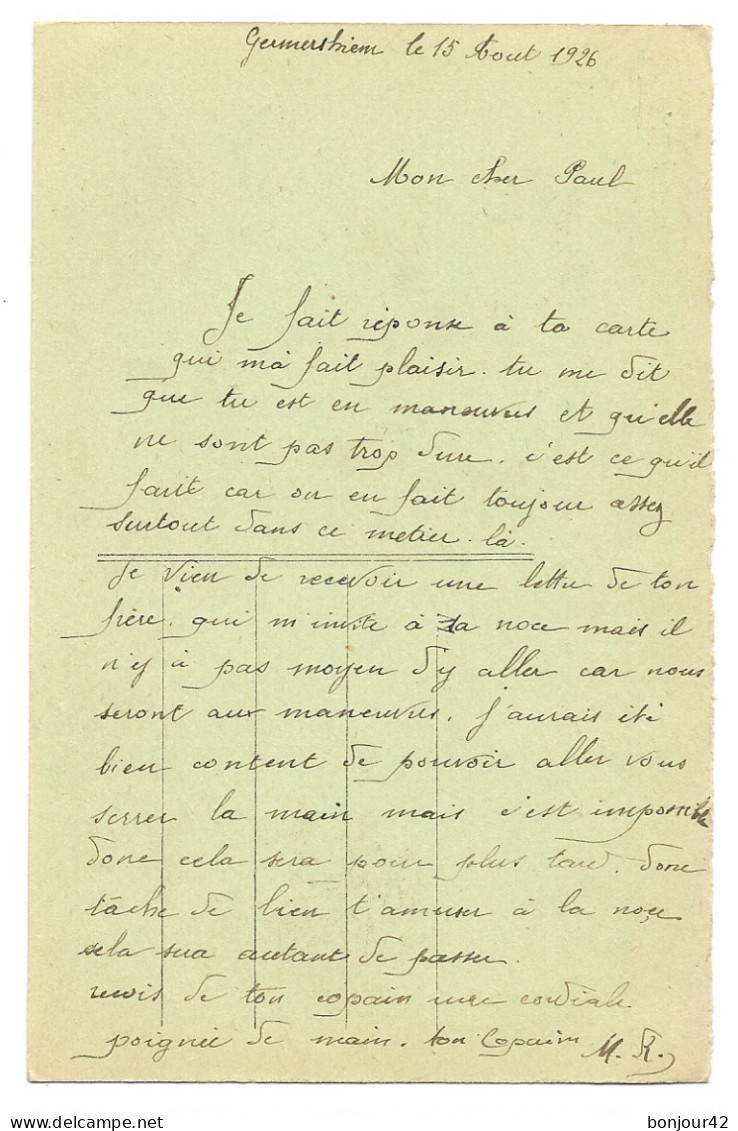 Germershiem le 15 Aout 1926
Mon cher Paul
Je fait réponse à ta carte
qui m'à fait plaisir. tu me dit
que tu est en maneuvres et qu'elle
ne sont pas trop dure. c'est ce qu'il
faité car on en fait toujour assez
surtout dans ce metier-là.
Je vien de recevoir une lettre de ton
frère. qui m'invite à sa noce mais il
n'y à pas moyen d'y aller car nous
seront aux maneuvres. J'aurais été
bien content de pouvoir aller vous
serrer la main mais c'est impossible
donc cela sera pour plus tard. donc
tâche de bien t'amuser à la noçe
cela sera autant de passer.
recois de ton copain une cordiale
poignée de main. ton Copain M. R.
bonjour42